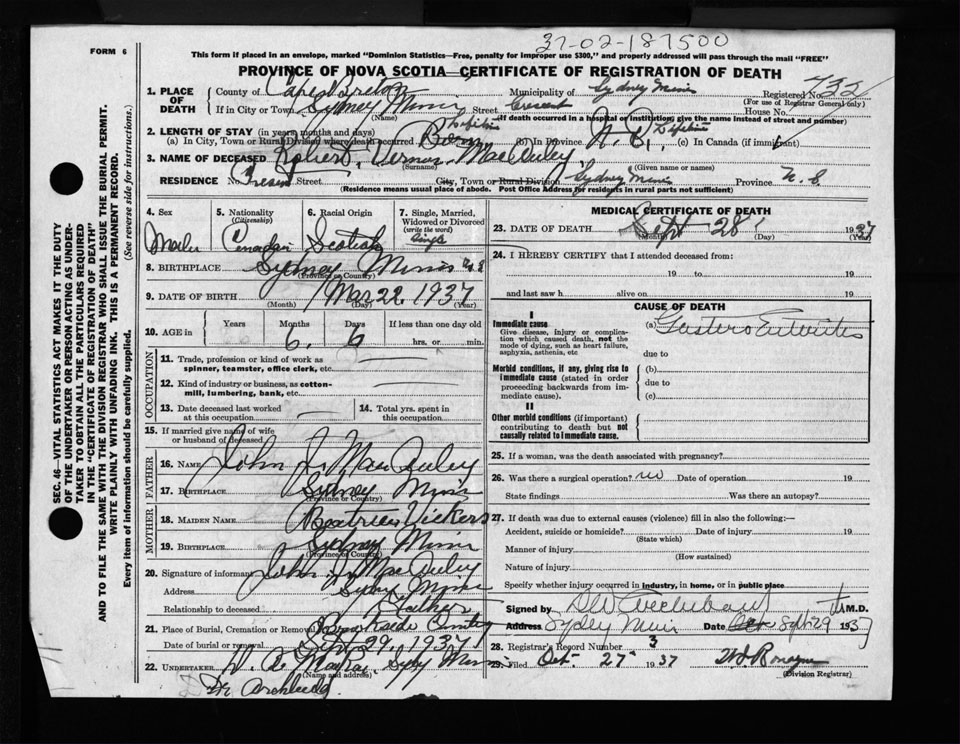 37-02-187500
FORM 6
This form if placed in an envelope, marked "Dominion Statistics—Free, penalty for improper use $300," and properly addressed will pass through the mail "FREE"
PROVINCE OF NOVA SCOTIA—CERTIFICATE OF REGISTRATION OF DEATH
1. PLACE OF DEATH
County of Cape Breton Municipality of Sydney Mines Registered No. 732
(For use of Registrar General only)
If in City or Town Sydney Mines Street Crescent House No.
(Name) (If death occurred in a hospital or institution, give the name instead of street and number)
2. LENGTH OF STAY (in years, months and days)
(a) In City, Town or Rural Division where death occurred Lifetime (b) In Province Lifetime (c) In Canada (if immigrant)
3. NAME OF DECEASED Robert Vernon MacAuley
(Surname) (Given name or names)
RESIDENCE No. Street City, Town or Rural Division Sydney Mines Province N.S.
(Residence means usual place of abode. Post Office Address for residents in rural parts not sufficient)
4. Sex Male
5. Nationality (Citizenship) Canadian
6. Racial Origin Scotish
7. Single, Married, Widowed or Divorced (write the word) Single
8. BIRTHPLACE Sydney Mines N.S.
(Province or Country)
9. DATE OF BIRTH Mar 22 1937
(Month) (Day) (Year)
10. AGE in Years Months Days If less than one day old
6. 6 hrs. or min.
OCCUPATION
11. Trade, profession or kind of work as spinner, teamster, office clerk, etc.
12. Kind of industry or business, as cotton-mill, lumbering, bank, etc.
13. Date deceased last worked at this occupation
14. Total yrs. spent in this occupation
15. If married give name of wife or husband of deceased
FATHER
16. NAME John J. MacAuley
17. BIRTHPLACE Sydney Mines
(Province or Country)
MOTHER
18. MAIDEN NAME Beatrice Vickers
19. BIRTHPLACE Sydney Mines
(Province or Country)
20. Signature of informant John J. MacAuley
Address Sydney Mines
Relationship to deceased Father
21. Place of Burial, Cremation or Removal Brookside Cemetery
Date of burial or removal Sept 29, 1937
22. UNDERTAKER Sydney Mines
(Name and address)
Dr Archibald
MEDICAL CERTIFICATE OF DEATH
23. DATE OF DEATH Sept 28 1937
(Month) (Day) (Year)
24. I HEREBY CERTIFY that I attended deceased from:
19 to 19
and last saw h alive on 19
CAUSE OF DEATH
I
Immediate cause
Give disease, injury or complication which caused death, not the mode of dying, such as heart failure, asphyxia, asthenia, etc
(a) Gastero Enteritis
due to
Morbid conditions, if any, giving rise to immediate cause (stated in order proceeding backwards from immediate cause).
(b)
due to
(c)
II
Other morbid conditions (if important) contributing to death but not causally related to immediate cause.
25. If a woman, was the death associated with pregnancy?
26. Was there a surgical operation? no Date of operation 19
State findings Was there an autopsy?
27. If death was due to external causes (violence) fill in also the following:—
Accident, suicide or homicide? Date of injury 19
(State which)
Manner of injury
(How sustained)
Nature of injury
Specify whether injury occurred in industry, in home, or in public place
Signed by DW Archibald M.D.
Address Sydney Mines Date Sept 29 1937
28. Registrar's Record Number 3
29. Filed Oct. 27 1937
(Division Registrar)
SEC. 46—VITAL STATISTICS ACT MAKES IT THE DUTY
OF THE UNDERTAKER OR PERSON ACTING AS UNDER-
TAKER TO OBTAIN ALL THE PARTICULARS REQUIRED
IN THE "CERTIFICATE OF REGISTRATION OF DEATH"
AND TO FILE THE SAME WITH THE DIVISION REGISTRAR WHO SHALL ISSUE THE BURIAL PERMIT.
WRITE PLAINLY WITH UNFADING INK. THIS IS A PERMANENT RECORD.
Every item of information should be carefully supplied.
(See reverse side for instructions.)